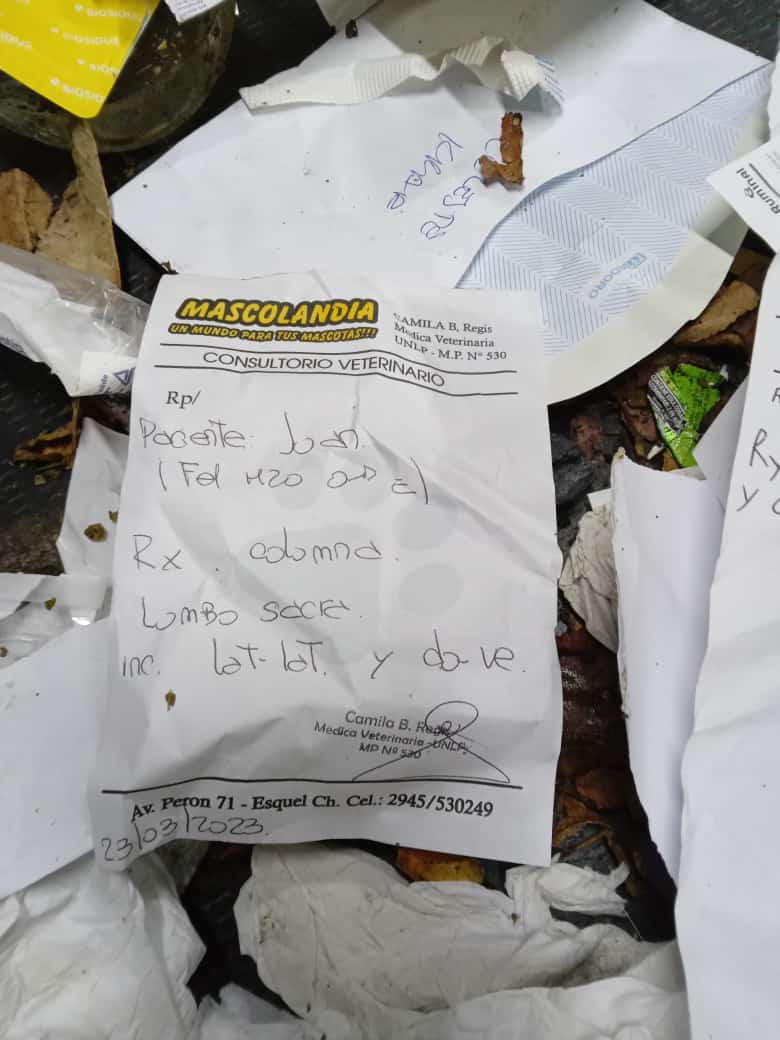 BIOSIDUS
BIOSIDUS
BIOSIDUS
CELESTE
KODORO
Ruminal
MASCOLANDIA
UN MUNDO PARA TUS MASCOTAS!!!
CAMILA B, Regis
Medica Veterinaria
UNLP - M.P. N° 530
CONSULTORIO VETERINARIO
Rp/
Paciente: Juan.
(Fel
Rx. columna.
Lumbo sacra.
inc. lat-lat. y do-ve.
Camila B. Regis
Medica Veterinaria -UNLP.
MP Nº 530
Av. Peron 71 - Esquel Ch. Cel.: 2945/530249
23/03/2023.
Rx
y